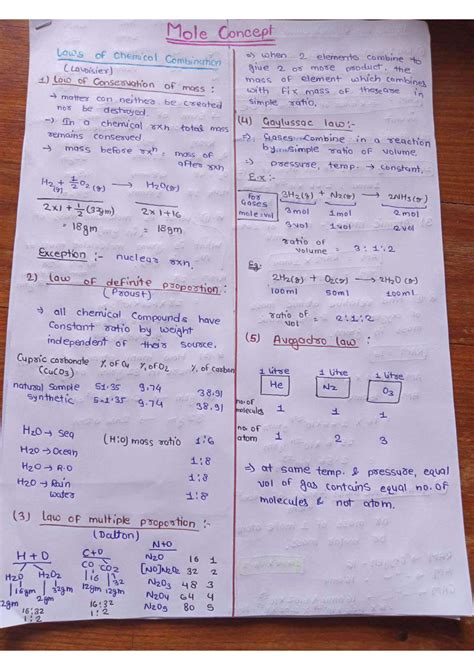 Mole Concept
Laws of Chemical Combination
(Lavoisier)
1) Law of Conservation of mass :
→ matter can neither be created
nor be destroyed.
⇒ In a chemical rxn total mass
remains conserved
→ mass before rxn = mass of
after rxn
H2(g) + 1/2 O2(g) → H2O(g)
2x1 + 1/2 (32gm) 2x1+16
= 18gm = 18gm
Exception :- nuclear rxn.
2) Law of definite proportion :
(Proust)
→ all chemical Compounds have
Constant ratio by weight
independent of their source.
Cupric carbonate % of Cu % of O2 % of Carbon
(CuCO3)
natural sample 51.35 9.74 38.91
synthetic 51.35 9.74 38.91
H2O → Sea (H:O) mass ratio 1:8
H2O → Ocean 1:8
H2O → R.O 1:8
H2O → Rain 1:8
water
(3) law of multiple proportion :-
(Dalton)
H + O C+O N+O
H2O H2O2 CO CO2 N2O 16 1
2gm 16gm 2gm 32gm 12gm 16 12gm 32 [NO]N2O2 32 2
16:32 16:32 N2O3 48 3
1:2 1:2 N2O4 64 4
N2O5 80 5
⇒ when 2 elements combine to
give 2 or more product. the
mass of element which combines
with fix mass of these are in
simple ratio.
(4) Gaylussac law :-
⇒ Gases Combine in a reaction
by simple ratio of volume
⇒ pressure, temp. → constant.
Ex:-
for Gases mole:vol
3H2(g) + N2(g) → 2NH3(g)
3mol 1mol 2mol
3vol 1vol 2vol
ratio of
volume = 3:1:2
Eg:
2H2(g) + O2(g) → 2H2O(g)
100ml 50ml 100ml
ratio of
vol = 2:1:2
(5) Avogadro law :
1 litre 1 litre 1 litre
He N2 O3
no. of
molecules 1 1 1
no. of
atom 1 2 3
⇒ at same temp. & pressure, equal
vol of gas contains equal no. of
molecules & not atom.